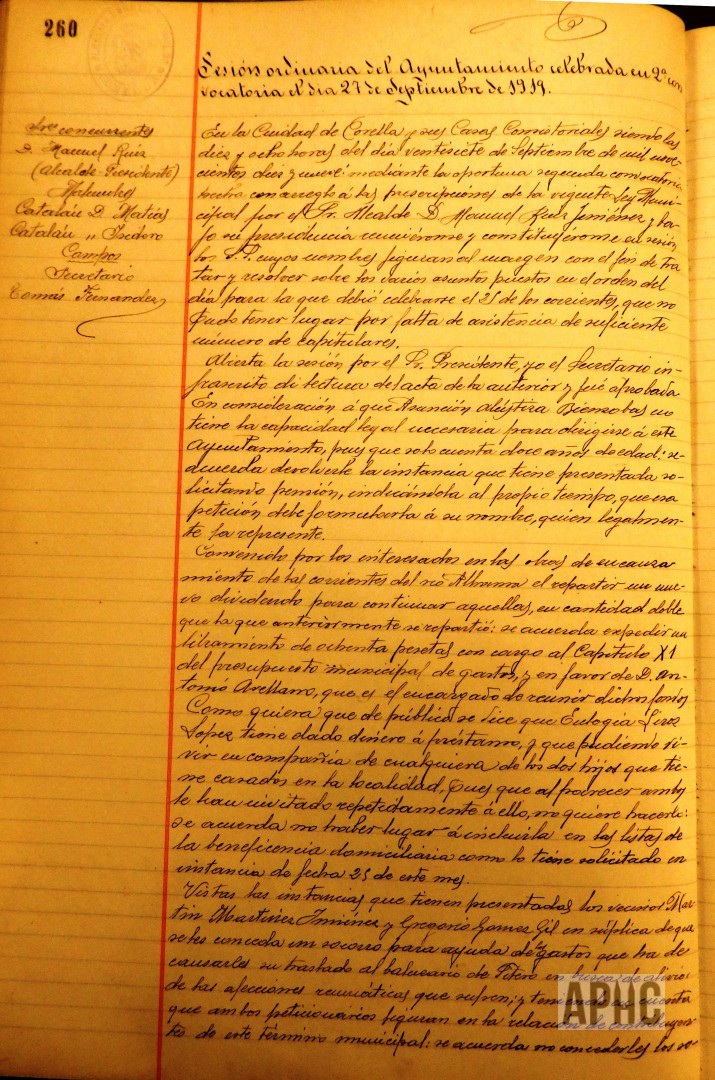 260
Sesión ordinaria del Ayuntamiento celebrada en 2ª con
vocatoria el día 27 de Septiembre de 1919.
Sres concurrentes
D. Manuel Ruiz
(Alcalde-Presidente)
Catalán D. Matías
Catalán " Isidoro
Campos
Secretario
Tomás Fernandez
En la Ciudad de Corella y sus Casas Consistoriales siendo las
diez y ocho horas del día ventisiete de Septiembre de mil nove-
cientos diez y nueve: mediante la oportuna segunda convocatoria
hecha con arreglo á las prescripciones de la vigente Ley Muni-
cipal por el Sr. Alcalde D. Manuel Ruiz Jiménez y ba-
jo su presidencia reuniéronse y constituyéronse en sesión
los S.S. cuyos nombres figuran al margen con el fin de tra-
tar y resolver sobre los varios asuntos puestos en el orden del
día para la que debió celebrarse el 25 de los corrientes, que no
pudo tener lugar por falta de asistencia de suficiente
número de capitulares.
Abierta la sesión por el Sr. Presidente, yo el Secretario in-
frascrito di lectura del acta de la anterior y fué aprobada
En consideración á que Asunción Bienzobas no
tiene la capacidad legal necesaria para dirigirse á este
Ayuntamiento, pues que solo cuenta doce años de edad: se
acuerda devolverle la instancia que tiene presentada so-
licitando pensión, indicándola al propio tiempo, que esa
petición debe formularla á su nombre, quien legalmen-
te la represente.
Convenido por los interesados en las obras de encauza
miento de las corrientes del río Alhama el repartir un nue-
vo dividendo para continuar aquellas, en cantidad doble
que la que anteriormente se repartió: se acuerda expedir un
libramiento de ochenta pesetas con cargo al Capítulo XI
del presupuesto municipal de gastos, y en favor de D. An-
tonio Arellano, que es el encargado de reunir dichos fondos
Como quiera que de pública se dice que Eulogia
Lopez tiene dado dinero á préstamo, y que pudiendo vi-
vir en compañía de cualquiera de los dos hijos que tie-
ne casados en la localidad, pues que al parecer ambos
le han invitado repetidamente á ello, no quiere hacerlo:
se acuerda no haber lugar á incluirla en las listas de
la beneficencia domiciliaria como lo tiene solicitado en
instancia de fecha 25 de este mes.
Vistas las instancias que tienen presentadas los vecinos Mar-
tin Martínez Jiménez y Gregorio Gomez Gil en súplica de que
se les conceda un socorro para ayuda de gastos que ha de
causarles su traslado al balneario de Fitero en busca de alivio
de las afecciones reumáticas que sufren; y teniendo en cuenta
que ambos peticionarios figuran en la relación de contribuyen-
tes de este término municipal: se acuerda no concederles los so-
APHC